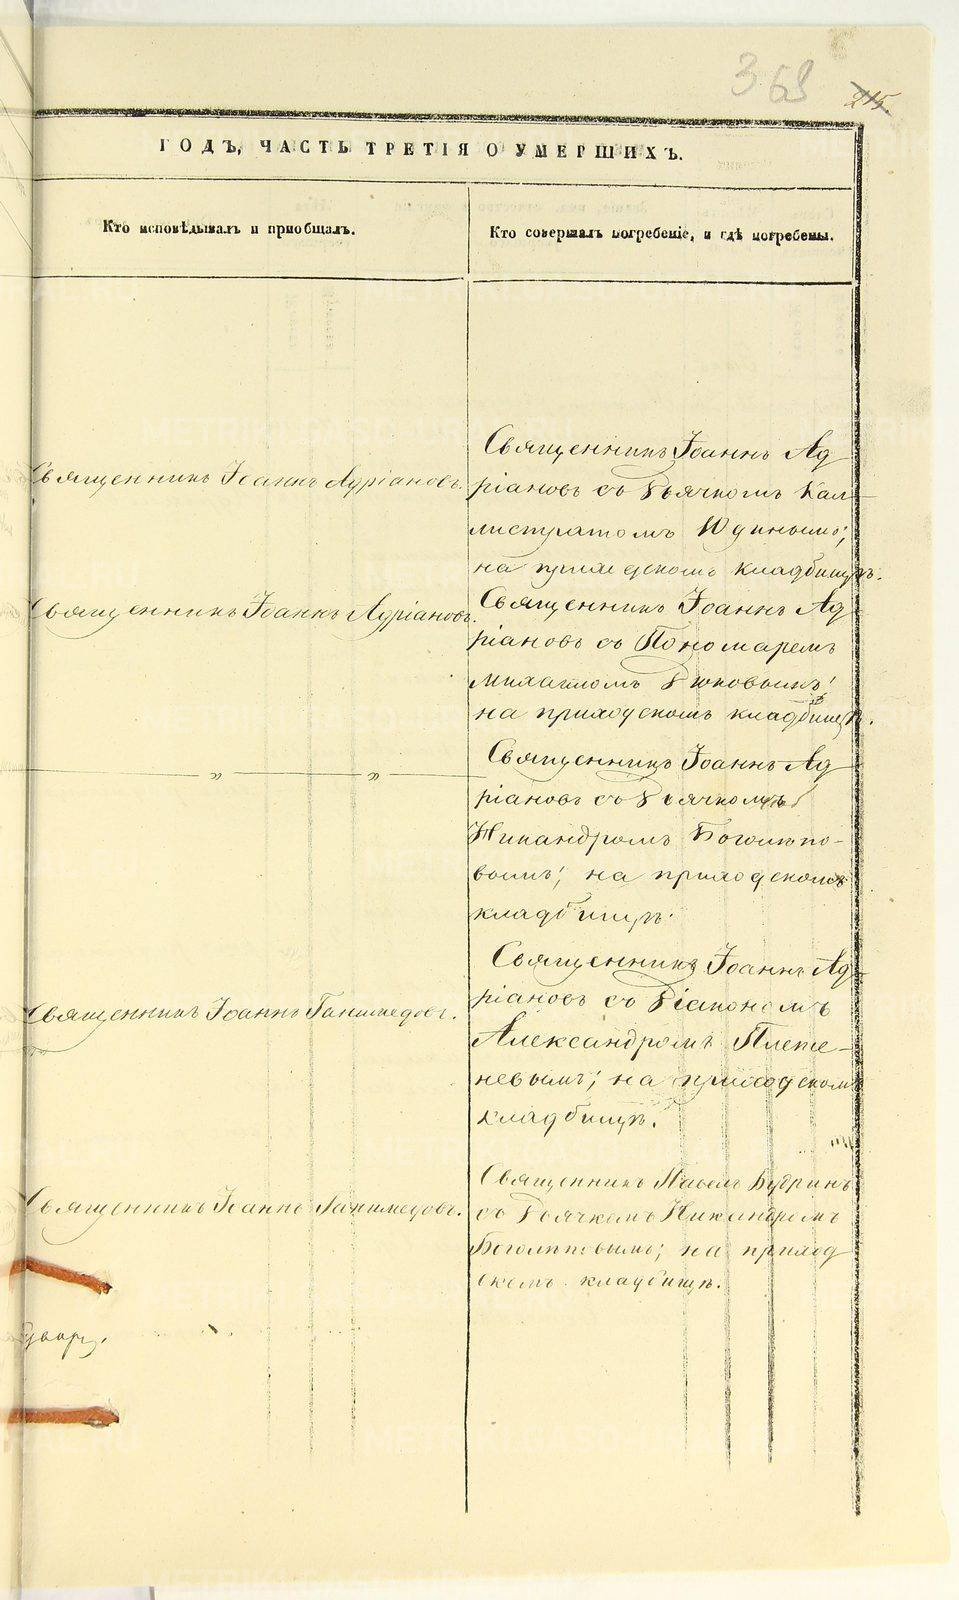 368
215
ГОДЪ, ЧАСТЬ ТРЕТІЯ О УМЕРШИХЪ.
Кто исповѣдывалъ и пріобщалъ.
Кто совершалъ погребеніе, и гдѣ погребены.
Священникъ Іоаннъ Адріановъ.
Священникъ Іоаннъ Ад
ріановъ съ Дьячкомъ Кал
листратомъ Юдинымъ;
на приходскомъ кладбищѣ.
Священникъ Іоаннъ Адріановъ.
Священникъ Іоаннъ Ад
ріановъ съ Пономаремъ
Михаиломъ Дюковымъ;
на приходскомъ кладбищѣ.
— „ — „ —
Священникъ Іоаннъ Ад
ріановъ съ Дьячкомъ
Никандромъ Боголѣпо-
вымъ; на приходскомъ
кладбищѣ.
Священникъ Іоаннъ Ганимедовъ.
Священникъ Іоаннъ Ад
ріановъ съ Діакономъ
Александромъ Плете-
невымъ; на приходскомъ
кладбищѣ.
Священникъ Іоаннъ Ганимедовъ.
Священникъ Павелъ Будринъ
съ Дьячкомъ Никандромъ
Боголѣповымъ; на приход
скомъ кладбищѣ.
METRIKI.GASO-URAL.RU